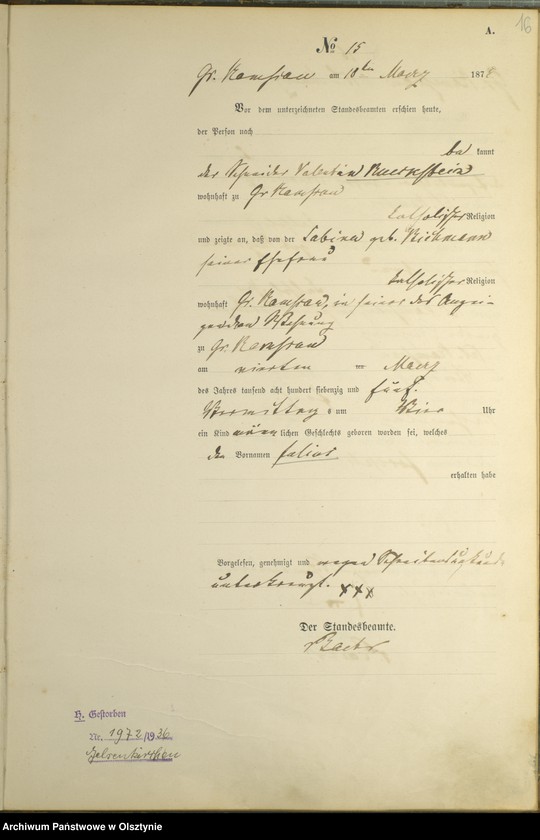 16
A.
No 15
Gr. Ramsau am 10ten Maerz 187
Vor dem unterzeichneten Standesbeamten erschien heute,
der Person nach
be kannt
der Schneider Valentin
wohnhaft zu Gr Ramsau
katholischer Religion
und zeigte an, daß von der Sabina geb.
seiner Ehefrau
katholischer Religion
wohnhaft Gr. Ramsau, in seiner des Anzei-
genden Wohnung
zu Gr. Ramsau
am vierten Maerz
des Jahres tausend acht hundert siebenzig und fünf.
Vormittags um Vier Uhr
ein Kind männlichen Geschlechts geboren worden sei, welches
den Vornamen Julius
erhalten habe
Vorgelesen, genehmigt und wegen
unterkreuzt. XXX
Der Standesbeamte.
H. Gestorben
Nr. 1972/1936
Gelsenkirchen
Archiwum Państwowe w Olsztynie